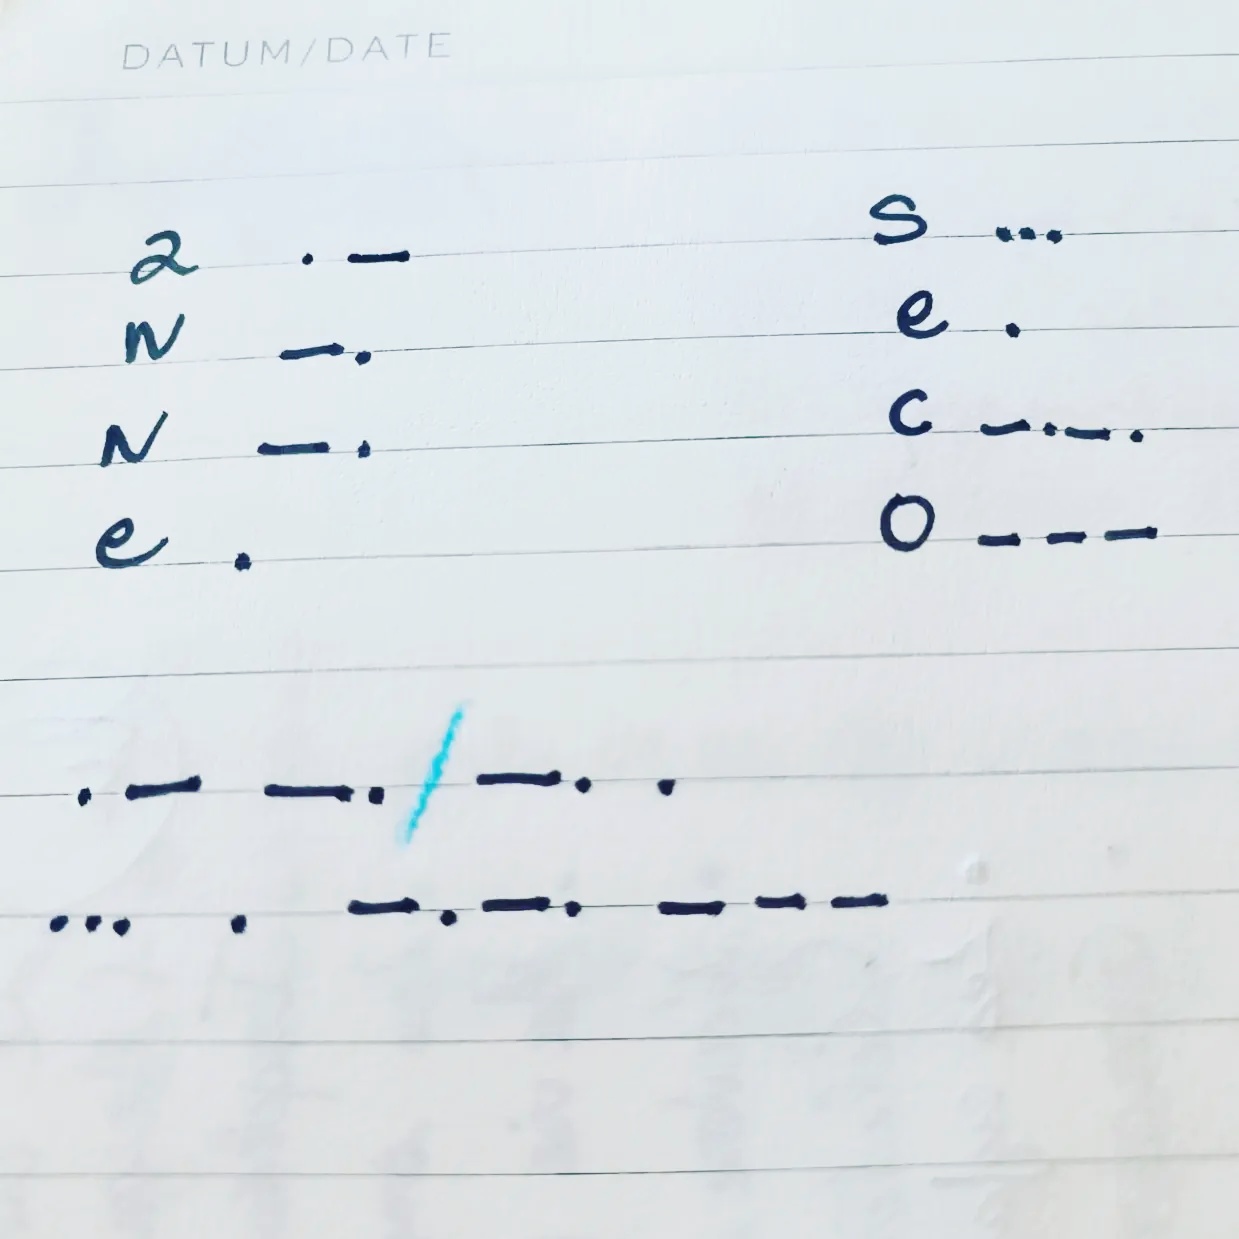 DATUM/DATE
a . —
N — .
N — .
e .
S ...
e .
C — . — .
O — — —
. — — . / — . .
... . — . — . — — —